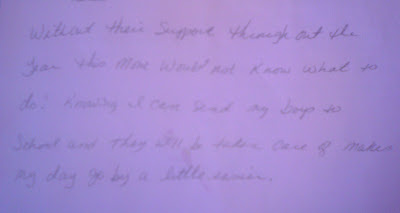 Without their Support through out the
Year this Mom Would not Know what to
do! Knowing I can Send my boys to
School and they will be taken care of makes
my day go by a little easier.